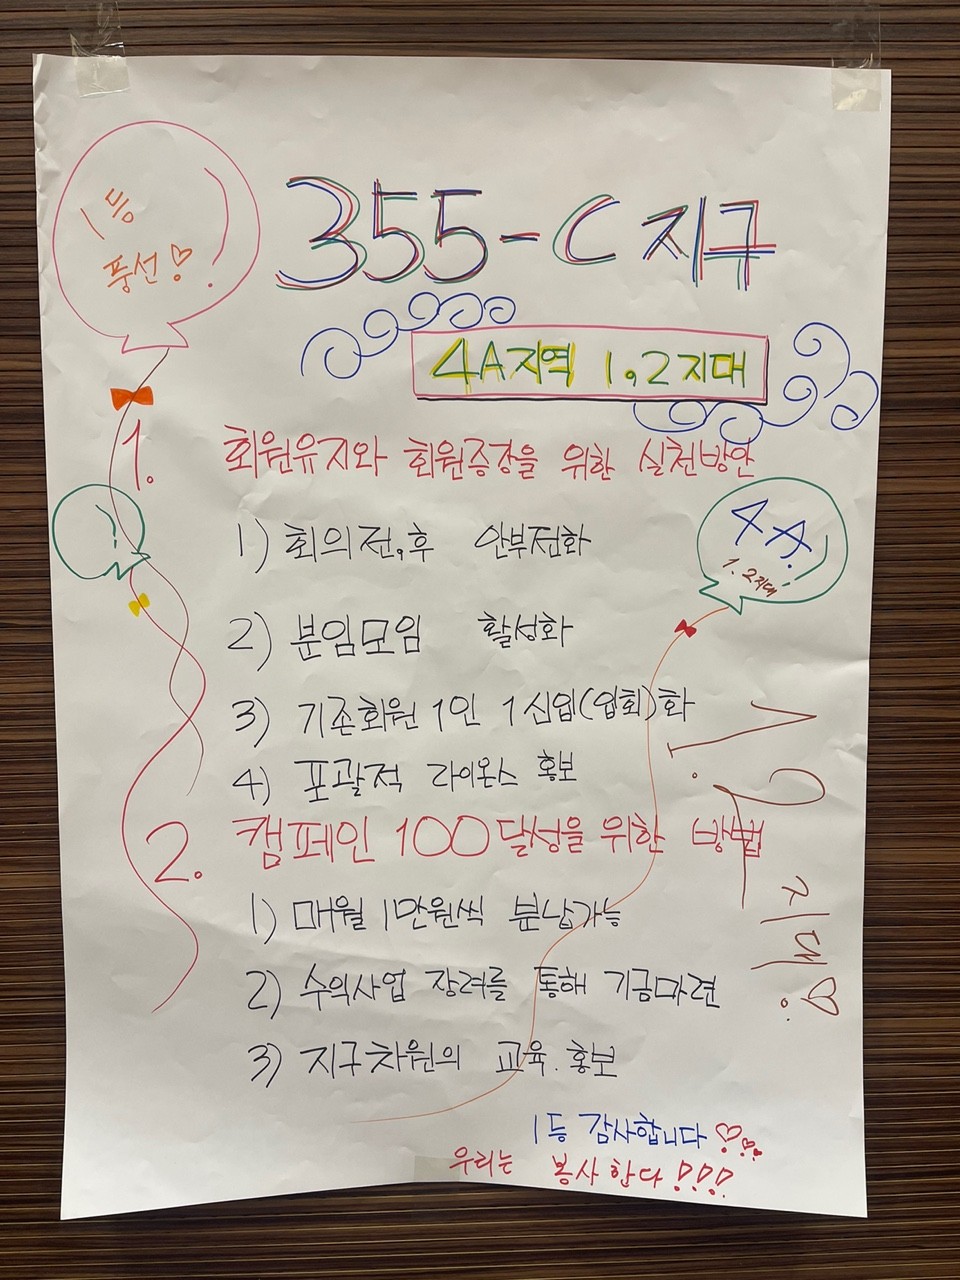 1등
풍선!
355-C 지구
4A지역 1.2지대
1. 회원유지와 회원증강을 위한 실천방안
1) 회의전,후 안부전화
4A.
1.2지대
2) 분임모임 활성화
3) 기존회원 1인 1신입(입회)화
4) 포괄적 라이온스 홍보
2. 캠페인 100달성을 위한 방법
1) 매월 1만원씩 분납가능
2) 수익사업 장려를 통해 기금마련
3) 지구차원의 교육.홍보
1등 감사합니다
우리는 봉사한다!!!!